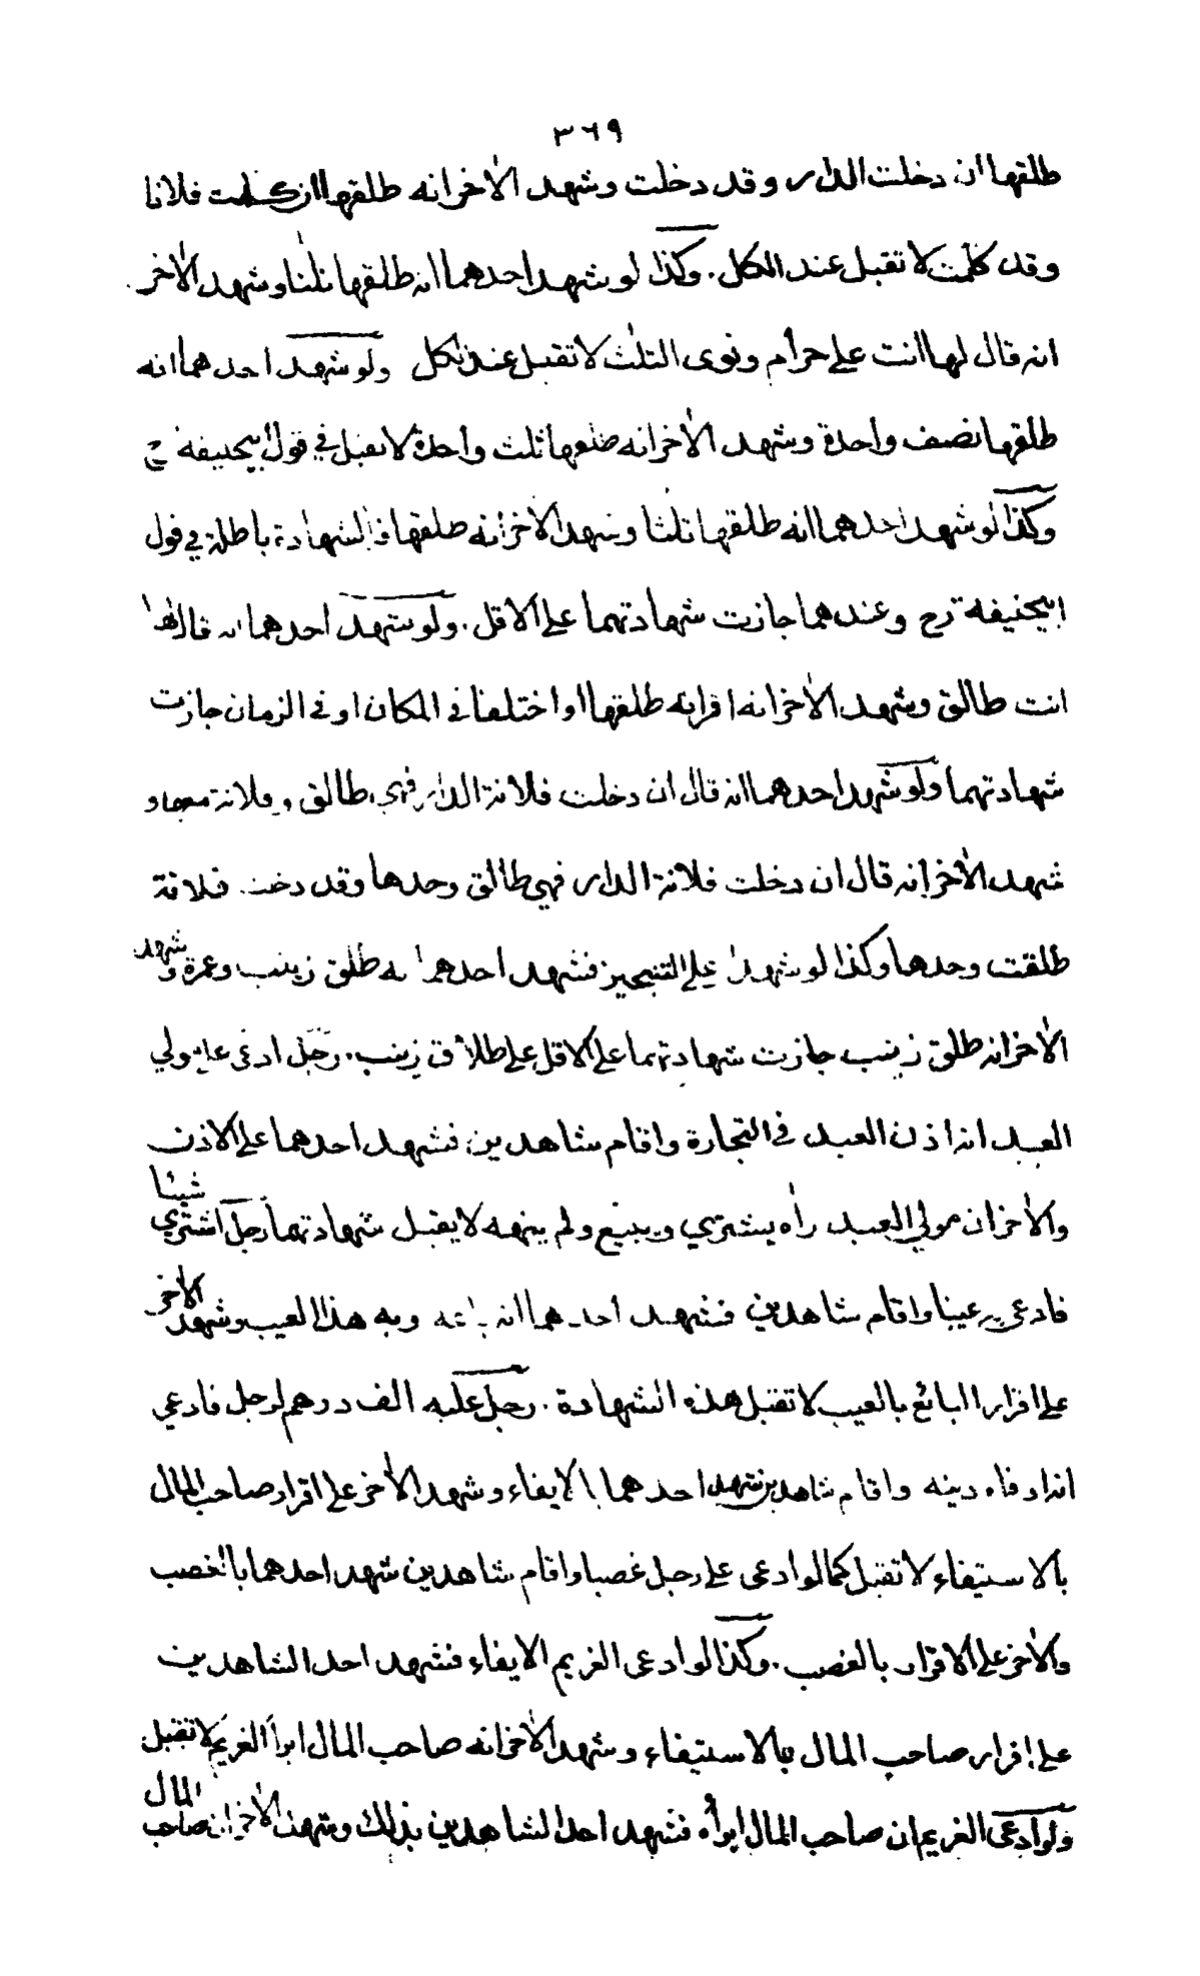 ٣٦٩
طلقها ان دخلت الدار وقد دخلت وشهد الاخر انه طلقها ان كلمت فلانا
وقد كلمت لا تقبل عند الكل . وكذا لو شهد احدهما انه طلقها ثلثا وشهد الاخر
انه قال لها انت علي حرام ونوى الثلث لا تقبل عند الكل ولو شهد احدهما انه
طلقها نصف واحدة وشهد الاخر انه طلقها ثلث واحدة لا تقبل في قول ابيحنيفه رح
وكذا لو شهد احدهما انه طلقها ثلثا وشهد الاخر انه طلقها فالشهادة باطلة في قول
ابيحنيفة رح وعندهما جازت شهادتهما على الاقل . ولو شهد احدهما انه قال لها
انت طالق وشهد الاخر انه اقر انه طلقها او اختلفا في المكان او في الزمان جازت
شهادتهما ولو شهد احدهما انه قال ان دخلت فلانة الدار فهي طالق وفلانة معها و
شهد الاخر انه قال ان دخلت فلانة الدار فهي طالق وحدها وقد دخلت فلانة
طلقت وحدها وكذا لو شهدا على التنجيز فشهد احدهما انه طلق زينب وعمرة وشهد
الاخر انه طلق زينب جازت شهادتهما على الاقل على طلاق زينب . رجل ادعى على مولي
العبد انه اذن العبد في التجارة واقام شاهدين فشهد احدهما على الاذن
والاخر ان مولي العبد راه يشتري ويبيع ولم ينهه لا يقبل شهادتهما رجل اشتري شيئا
فادعى به عيبا واقام شاهدين فشهد احدهما انه باعه وبه هذا العيب وشهد الاخر
على اقرار البائع بالعيب لا تقبل هذه الشهادة . رجل عليه الف درهم لرجل فادعي
انه اوفاه دينه واقام شاهدين شهد احدهما بالايفاء وشهد الاخر على اقرار صاحب المال
بالاستيفاء لا تقبل كما لو ادعى على رجل غصبا واقام شاهدين شهد احدهما بالغصب
والاخر على الاقرار بالغصب . وكذا لو ادعى الغريم الايفاء فشهد احد الشاهدين
على اقرار صاحب المال بالاستيفاء وشهد الاخر انه صاحب المال ابرأ الغريم لا تقبل
ولو ادعى الغريم ان صاحب المال ابرأه فشهد احد الشاهدين بذلك وشهد الاخر ان صاحب المال